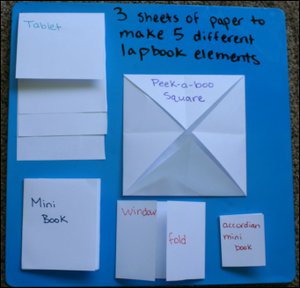 3 sheets of paper to
make 5 different
lapbook elements
Tablet
Peek-a-boo
Square
Mini
Book
Window
fold
accordian
mini
book